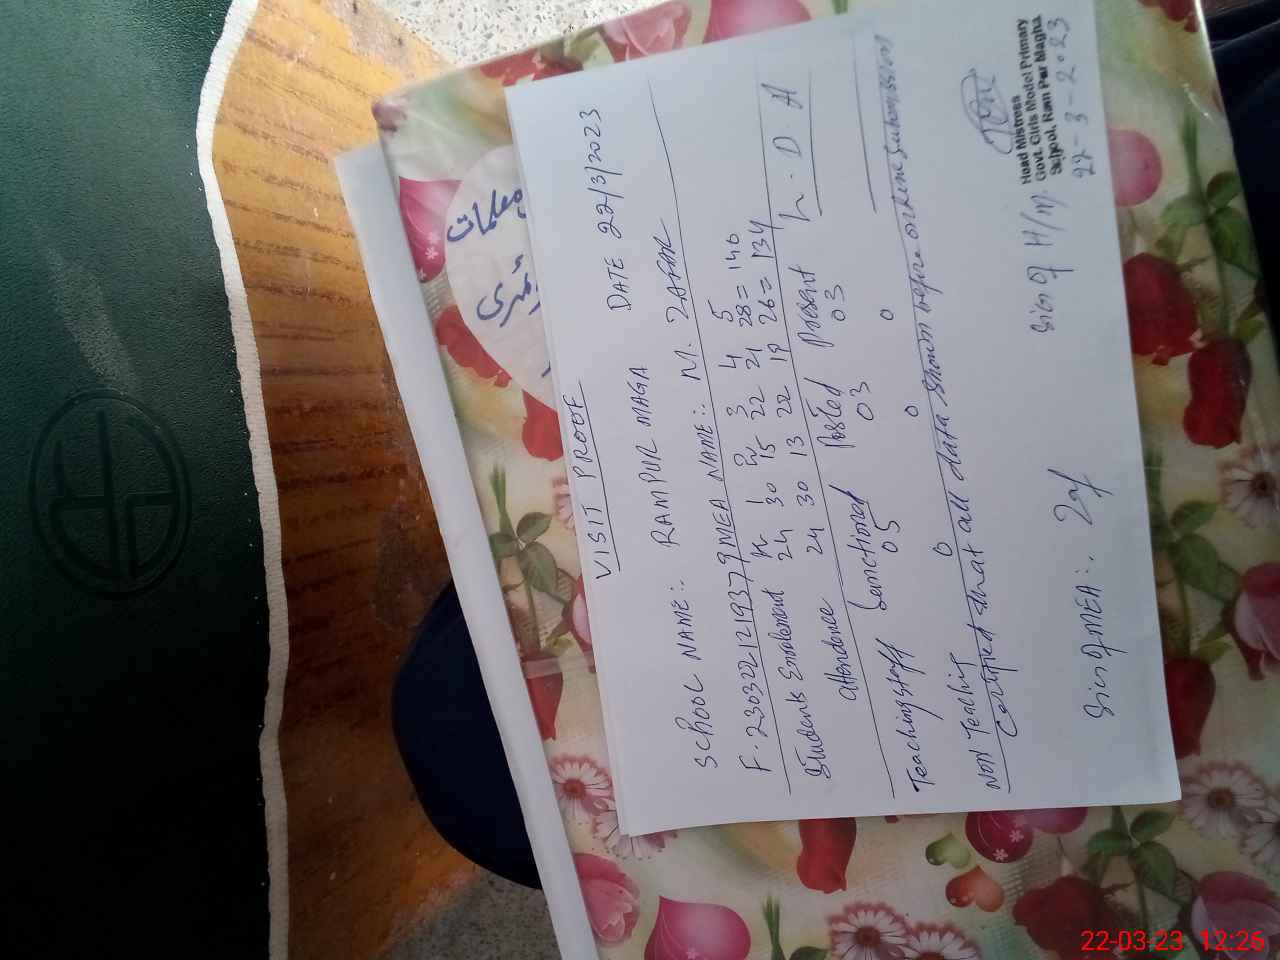 معلمات
VISIT PROOF
DATE 22/3/2023
SCHOOL NAME:. RAMPUR MAGA
F. 2303221219379 MEA NAME:. M. ZAFAR
K 1 2 3 4 5
Students Enrolement 24 30 15 22 21 28 = 140
Attendence 24 30 13 22 19 26 = 134
Sanctioned Posted Present L. D. A
Teaching staff 05 03 03
Non Teaching 0 0 0
Certified that all data shown before online submission
Sign of MEA:. Zaf
Sign of H/M.
Head Mistress
Govt. Girls Model Primary
School, Ram Pur Magha
22-3-2023
22-03-23 12:26